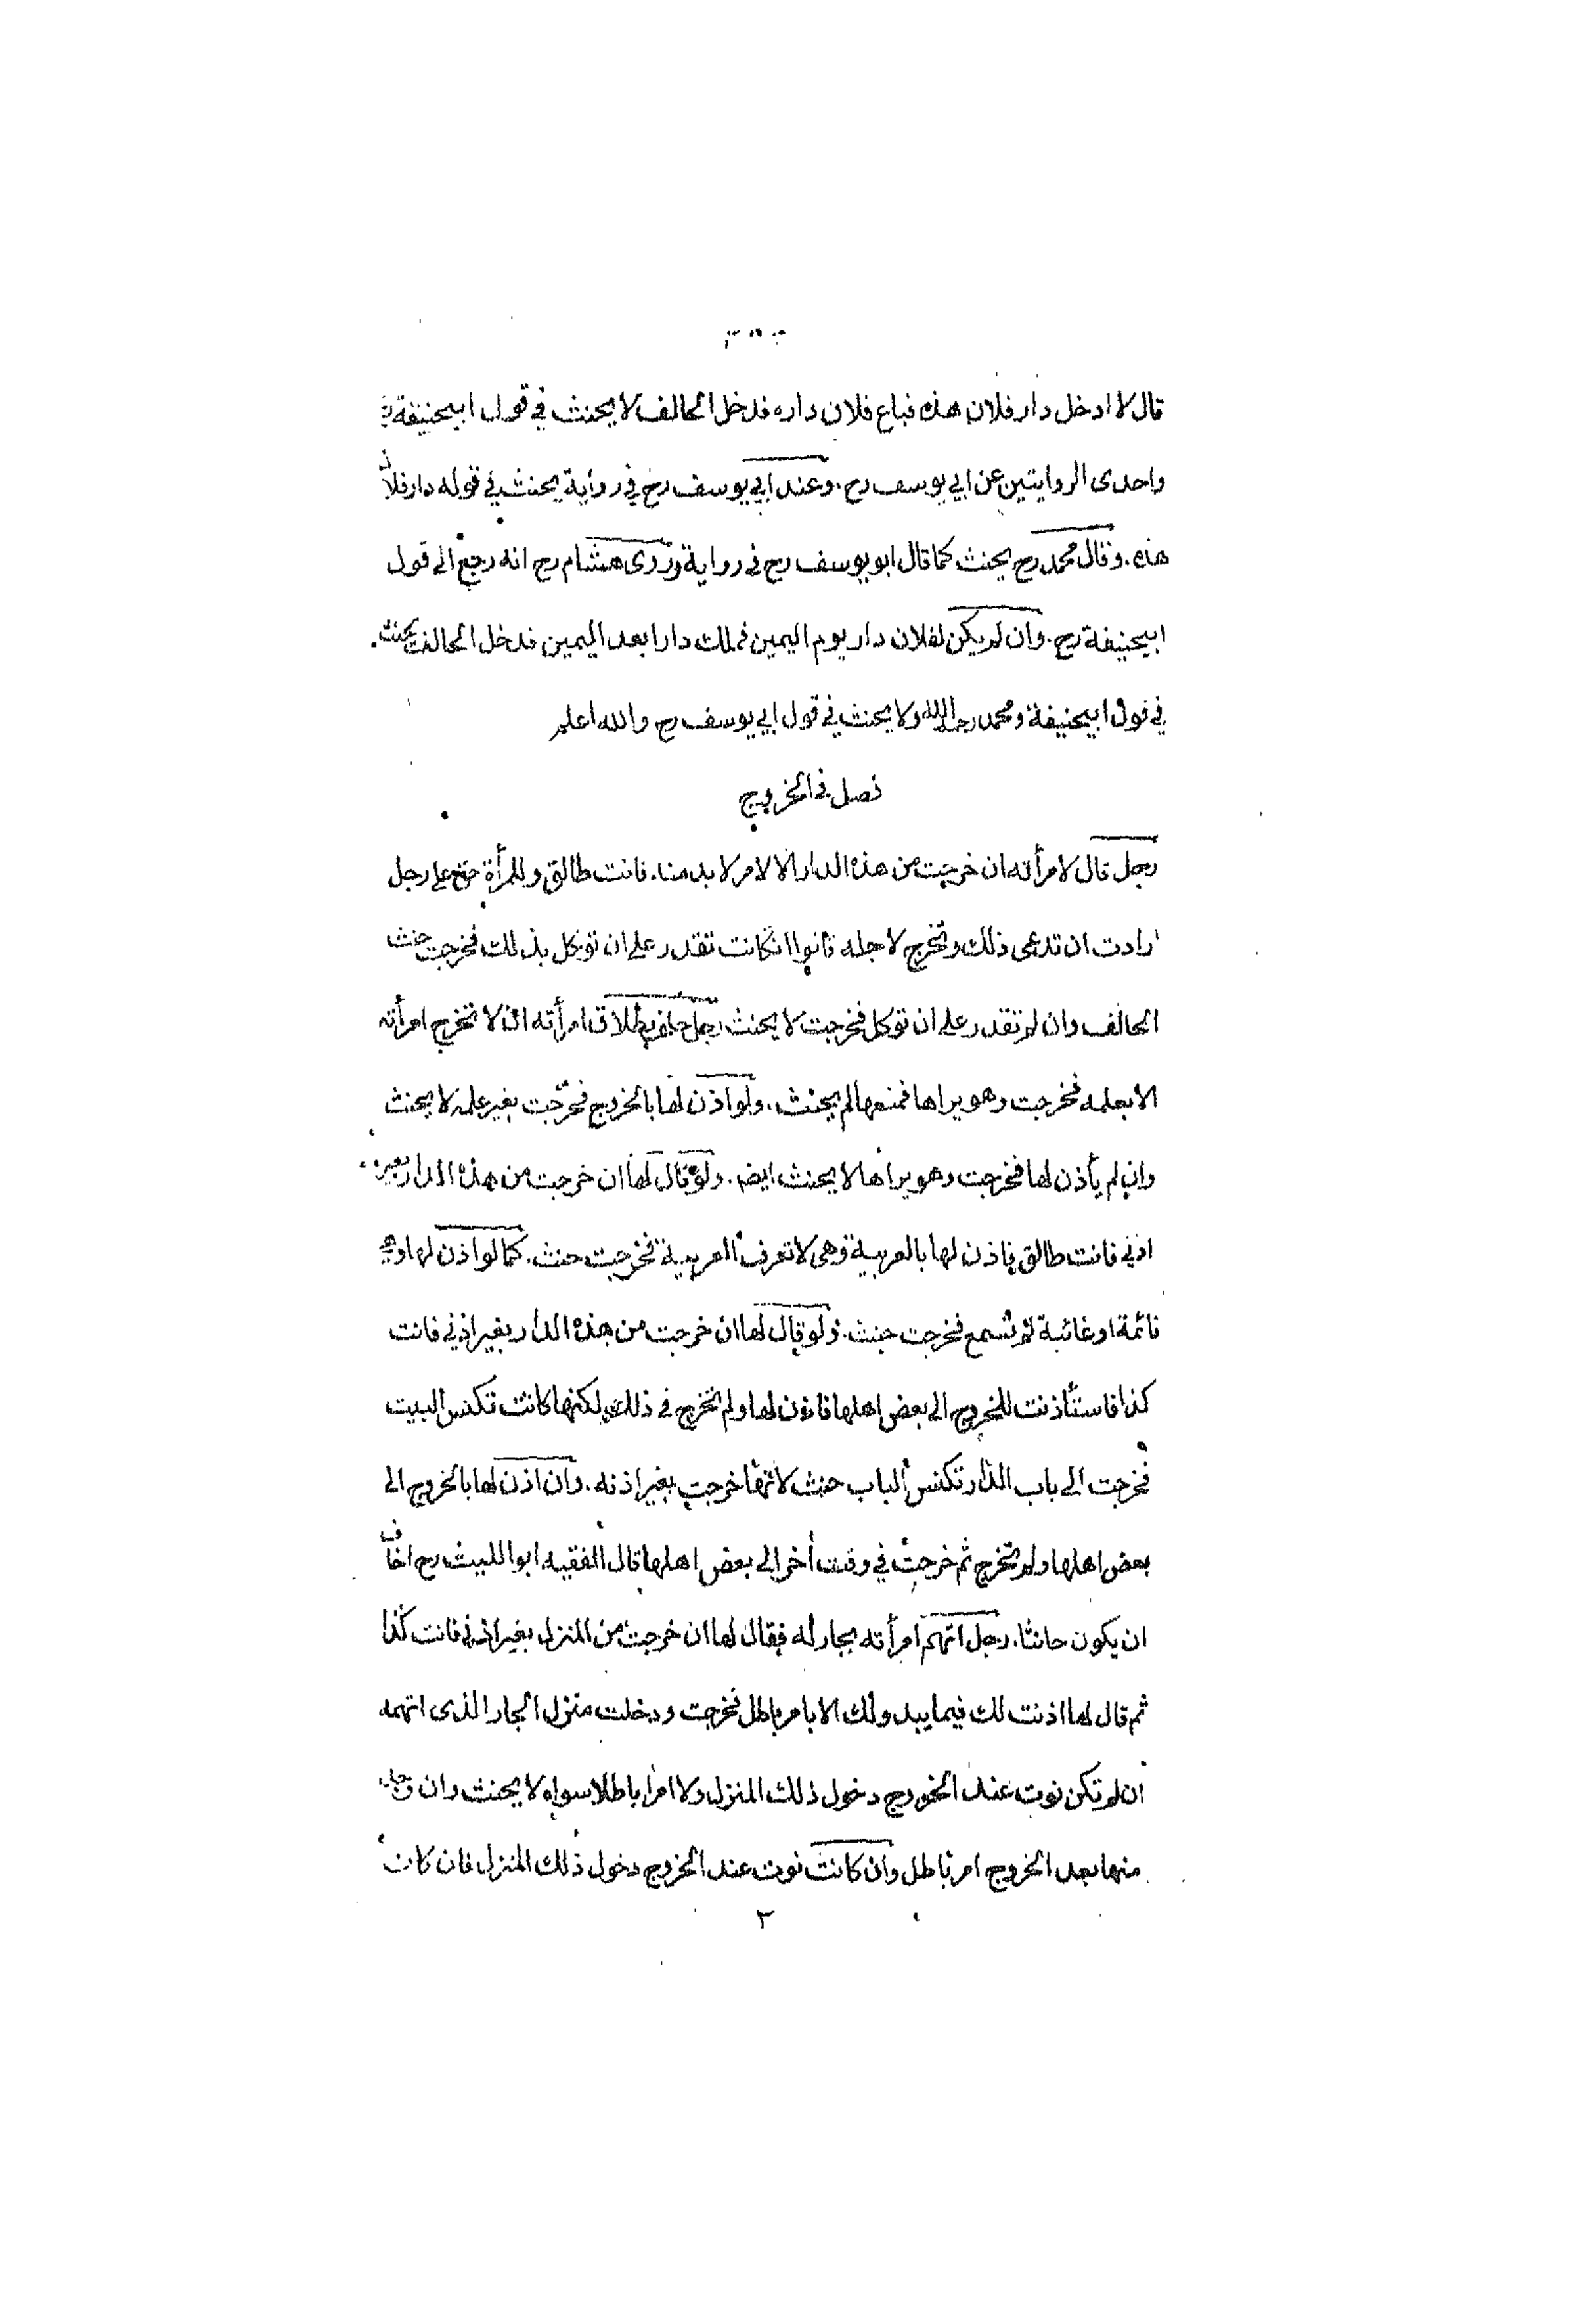 قال لا ادخل دار فلان هذه فباع فلان داره فدخل الحالف لا يحنث في قول ابيحنيفة رح
واحدى الروايتين عن ابي يوسف رح . وعند ابي يوسف رح في رواية يحنث في قوله دار فلان
هذه . وقال محمد رح يحنث كما قال ابو يوسف رح في رواية وروى هشام رح انه رجع الى قول
ابيحنيفة رح . وان لم يكن لفلان دار يوم اليمين فملك دارا بعد اليمين فدخل الحالف يحنث
في قول ابيحنيفة ومحمد رحمهما الله ولا يحنث في قول ابي يوسف رح والله اعلم
فصل في الخروج
رجل قال لامرأته ان خرجت من هذه الدار الا لامر لا بد منا . فانت طالق وللمرأة حق على رجل
ارادت ان تدعى ذلك وتخرج لاجله قالوا انكانت تقدر على ان توكل بذلك فخرجت حنث
الحالف وان لم تقدر على ان توكل فخرجت لا يحنث رجل حلف بطلاق امرأته ان لا تخرج امرأته
الا بعلمه فخرجت وهو يراها فمنعها لم يحنث . ولو اذن لها بالخروج فخرجت بغير علمه لا يحنث
وان لم يأذن لها فخرجت وهو يراها لا يحنث ايضا . ولو قال لها ان خرجت من هذه الدار بغير
اذني فانت طالق فاذن لها بالعربية وهى لا تعرف العربية فخرجت حنث . كما لو اذن لها وهي
نائمة او غائبة لم تسمع فخرجت حنث . ولو قال لها ان خرجت من هذه الدار بغير اذني فانت
كذا فاستأذنت للخروج الى بعض اهلها فاذن لها ولم تخرج في ذلك لكنها كانت تكنس البيت
فخرجت الى باب الدار تكنس الباب حنث لانها خرجت بغير اذنه . وان اذن لها بالخروج الى
بعض اهلها ولم تخرج ثم خرجت في وقت أخر الى بعض اهلها قال الفقيه ابو الليث رح اخاف
ان يكون حانثا . رجل اتهم امرأته بجار له فقال لها ان خرجت من المنزل بغير اذني فانت كذا
ثم قال لها اذنت لك فيما يبدو لك الا بامر باطل فخرجت ودخلت منزل الجار الذى اتهمه
ان لم تكن نوت عند الخروج دخول ذلك المنزل ولا امرا باطلا سواه لا يحنث وان وجد
منها بعد الخروج امر باطل وان كانت نوت عند الخروج دخول ذلك المنزل فان كان
٣